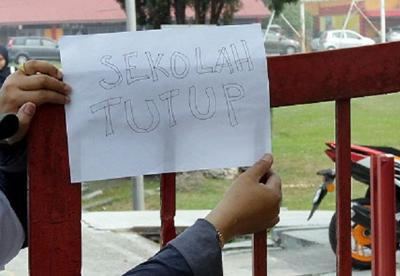 SEKOLAH
TUTUP